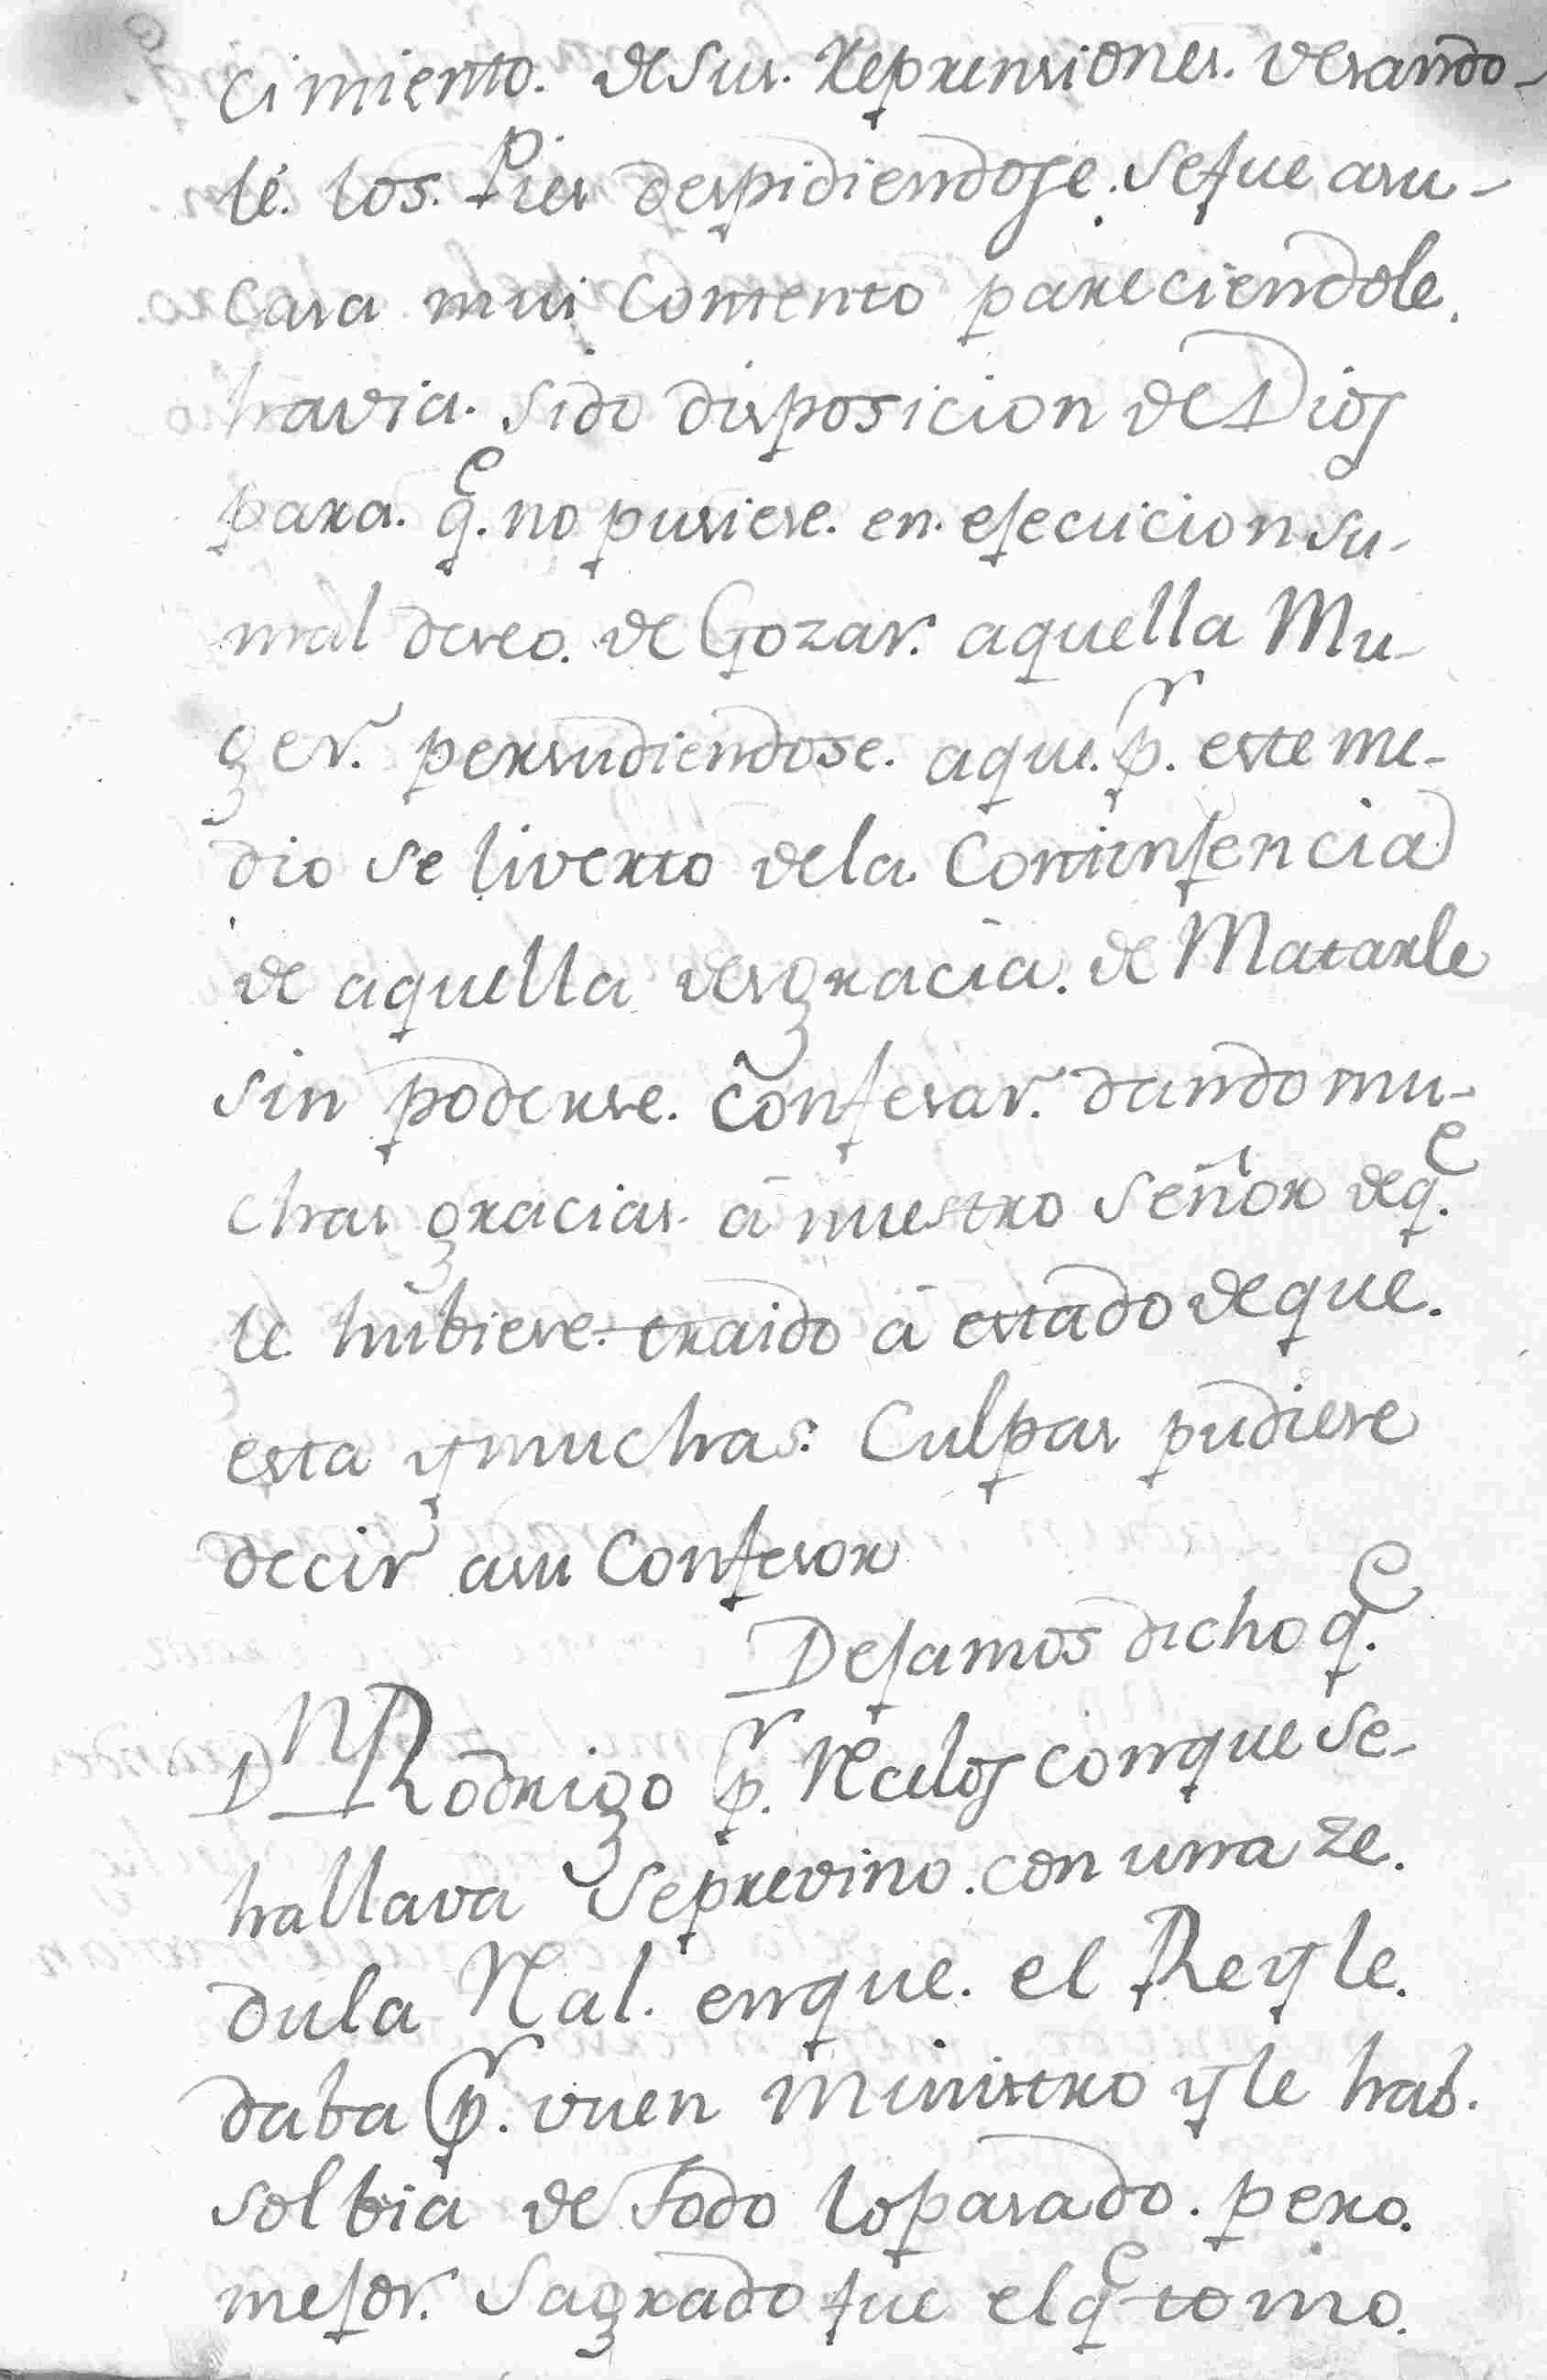 cimiento. de sus. Reprensiones. vesando-
le. los. Pies despidiendose. se fue asu-
casa mui contento pareciendole.
havia. sido disposicion de Dios
para. q.e no pusiese. en. ejecucion su-
mal deseo. de Gozar. aquella Mu-
ger. persudiendose. aque. p.r este me-
dio se liverto dela. Continjencia
de aquella desgracia. de Matarle
sin poderse. confesar. dando mu-
chas gracias. á nuestro Señor deq.e
le hubiese. traido á estado deque.
esta y muchas. Culpas pudiese
decir asu Confesor
Dejamos dicho q.e
Dn Rodrigo p.r Recelos conque se-
hallava se previno. con una ze.
dula Real. enque. el Rey le.
daba p.r vuen Ministro y le hab.
solbia de todo lo pasado. pero.
mejor. Sagrado fue elq.e tomo.